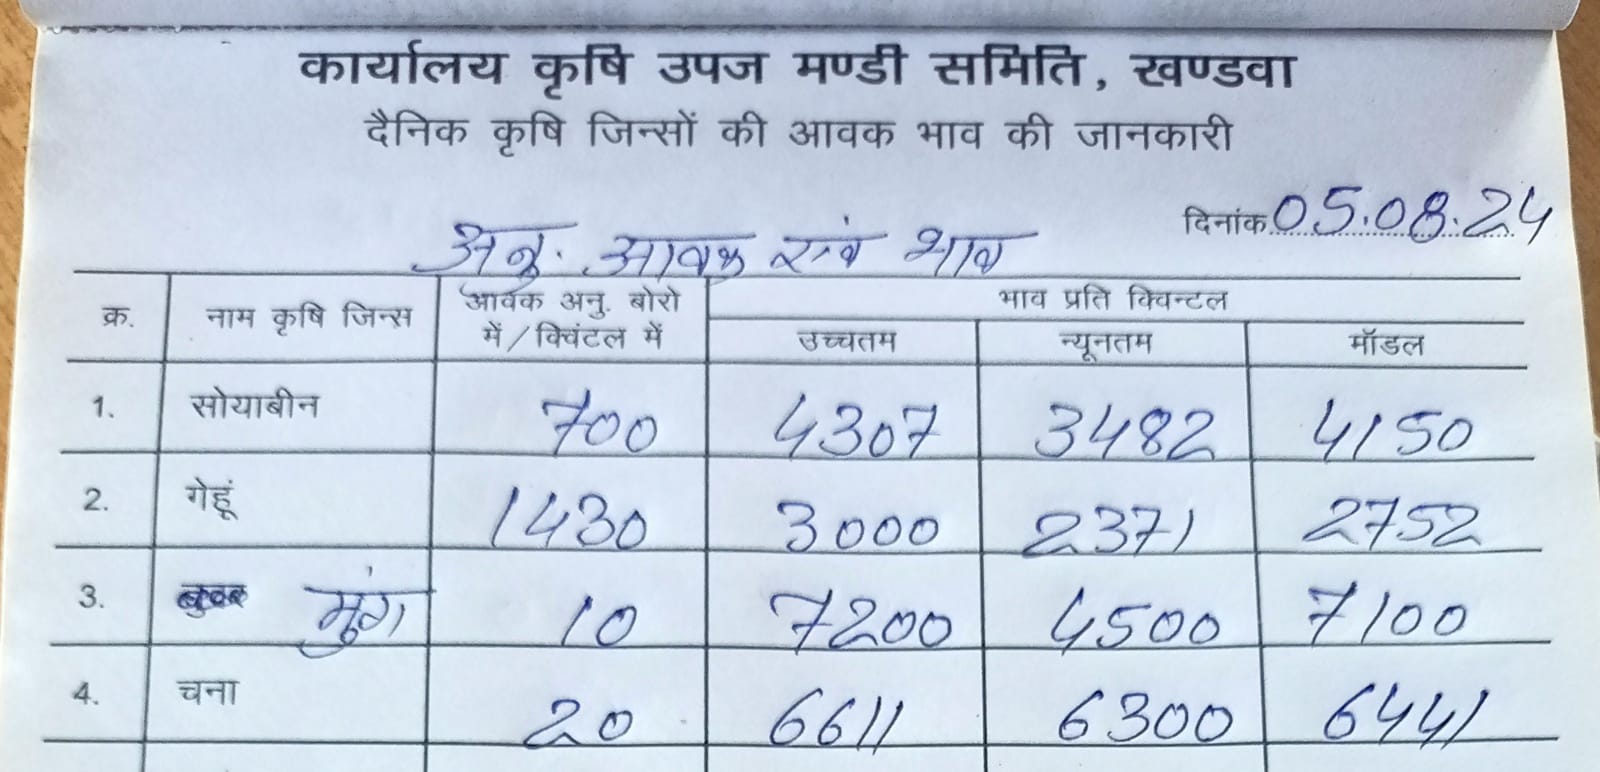 कार्यालय कृषि उपज मण्डी समिति, खण्डवा
दैनिक कृषि जिन्सों की आवक भाव की जानकारी
दिनांक 05.08.24
अनु. आवक एवं भाव
क्र. नाम कृषि जिन्स आवक अनु. बोरो में/क्विंटल में भाव प्रति क्विन्टल
उच्चतम न्यूनतम मॉडल
1. सोयाबीन 700 4307 3482 4150
2. गेहूं 1430 3000 2371 2752
3. मुंग 10 7200 4500 7100
4. चना 20 6611 6300 6441